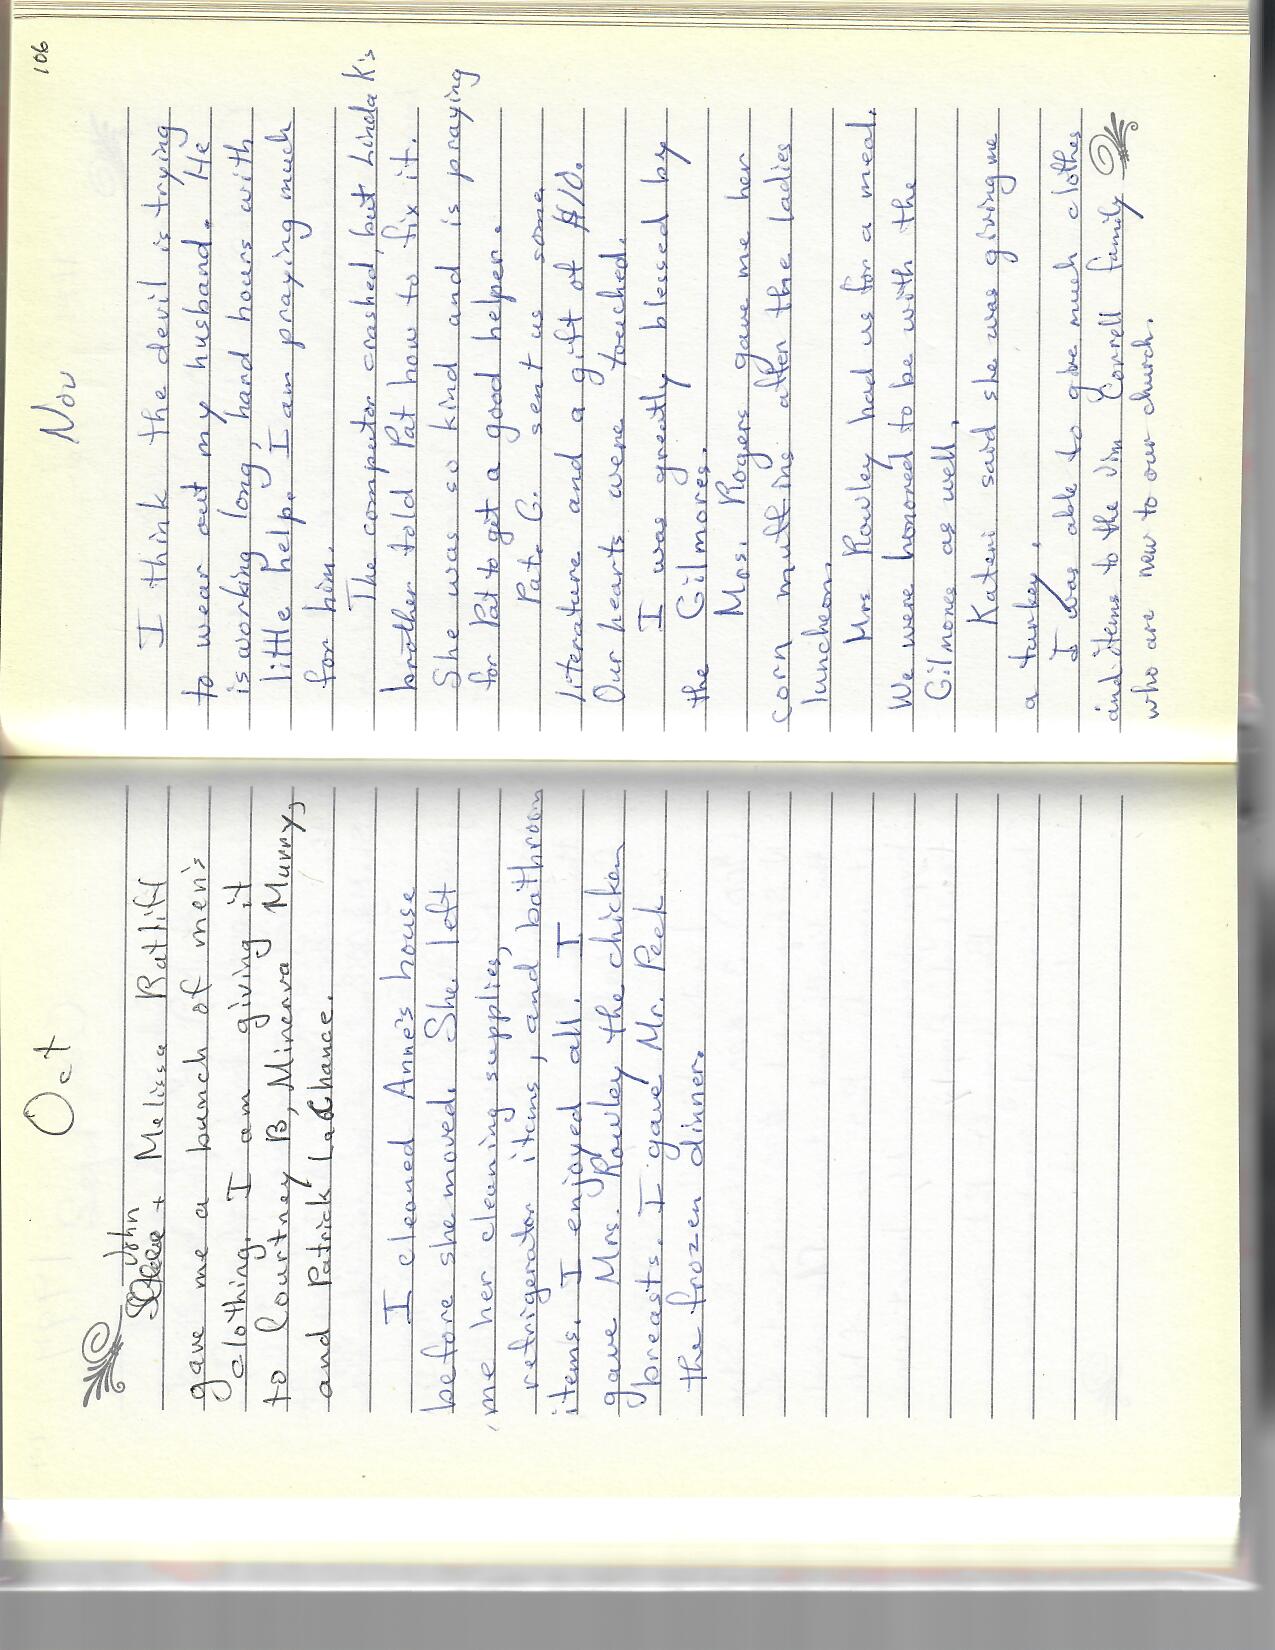 Oct
John
+ Melissa Ratliff
gave me a bunch of men's
clothing. I am giving it
to Courtney B, Minerva Murry,
and Patrick LaChance.
I cleaned Anne's house
before she moved. She left
me her cleaning supplies,
refrigerator items, and bathroom
items. I enjoyed all. I
gave Mrs. Rowley the chicken
breasts. I gave Mr. Peek
the frozen dinner.
106
Nov
I think the devil is trying
to wear out my husband. He
is working long, hard hours with
little help. I am praying much
for him.
The computor crashed, but Linda K's
brother told Pat how to fix it.
She was so kind and is praying
for Pat to get a good helper.
Pat. G. sent us some
literature and a gift of $10.
Our hearts were touched.
I was greatly blessed by
the Gilmores.
Mrs. Rogers gave me her
corn muffins after the ladies
luncheon.
Mrs Rowley had us for a meal.
We were honored to be with the
Gilmores as well.
Kateri said she was giving me
a turkey.
I was able to give much clothes
and items to the Jim Correll family
who are new to our church.